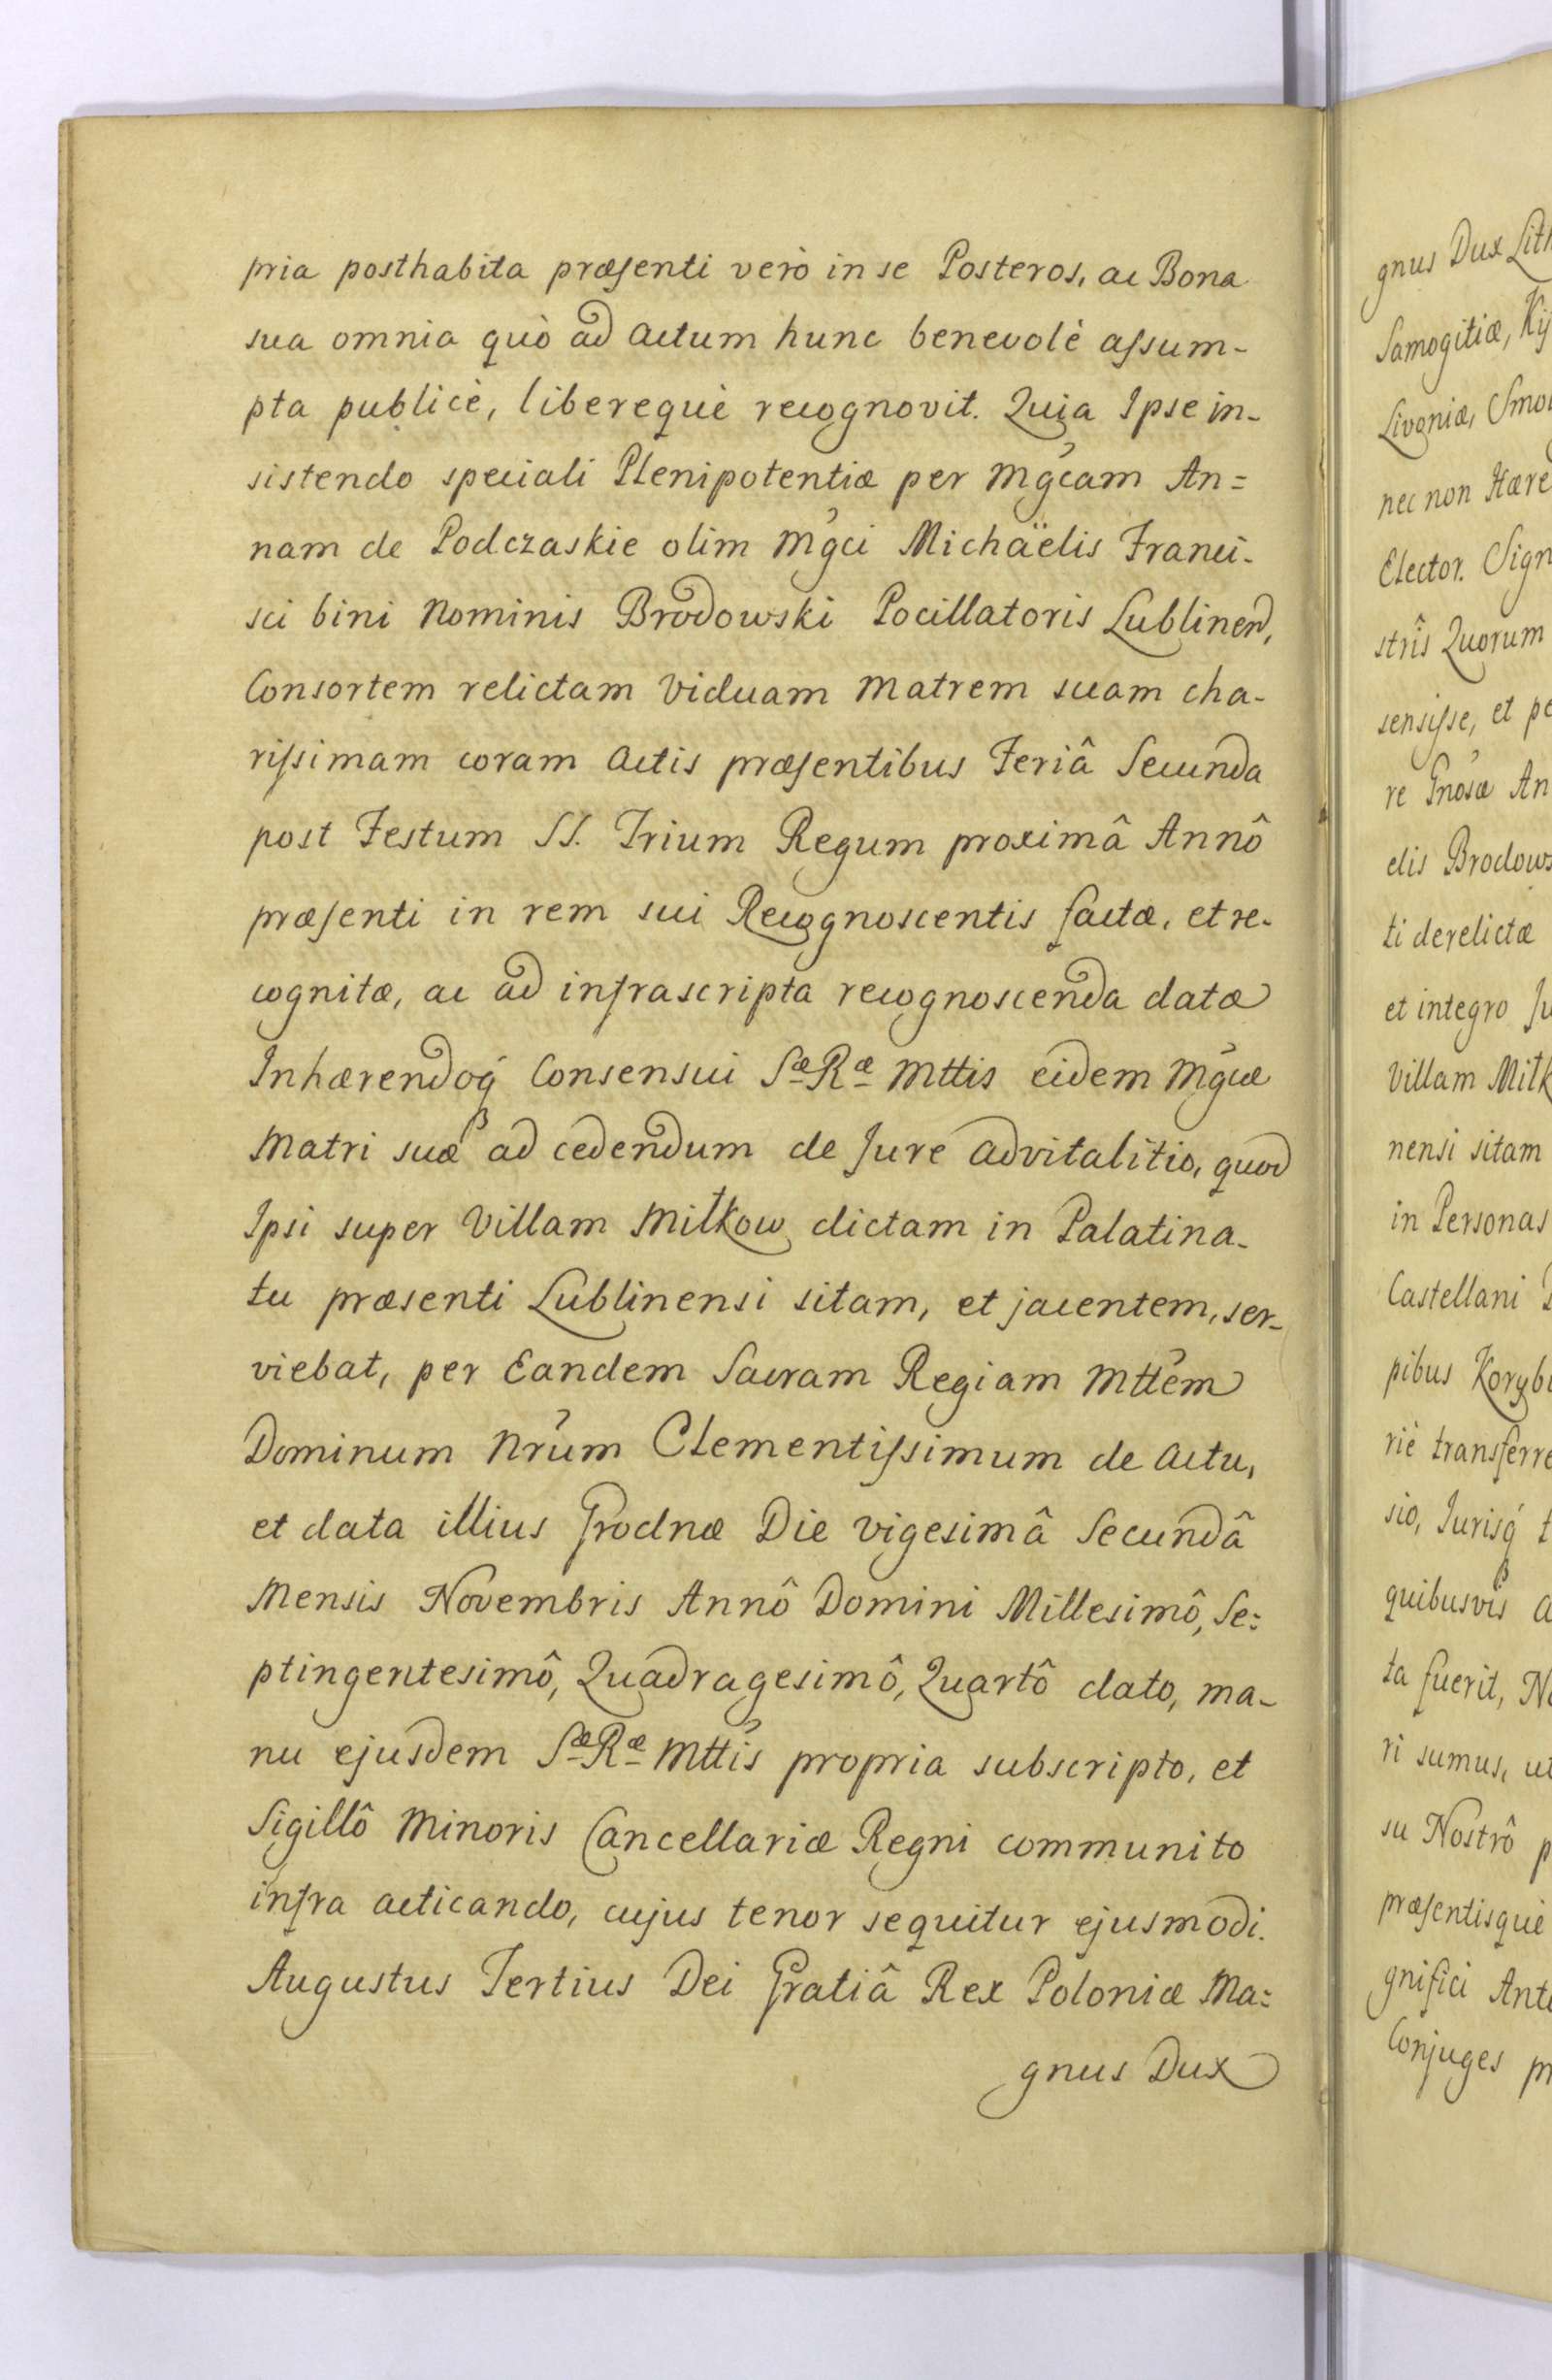 pria posthabita præsenti verò in se Posteros, ac Bona
sua omnia quò ad actum hunc benevolè assum-
pta publicè, liberequè recognovit. Quia Ipse in-
sistendo speciali Plenipotentiæ per Mg̃cam An=
nam de Podczaskie olim Mg̃ci Michaëlis Franci-
sci bini Nominis Brodowski Pocillatoris Lublinen,
Consortem relictam Viduam Matrem suam cha-
rissimam coram Actis præsentibus Feriâ Secunda
post Festum SS. Trium Regum proximâ Annô
præsenti in rem sui Recognoscentis factæ, et re-
cognitæ, ac ad infrascripta recognoscenda datæ
Inhærendoq́ Consensui Sæ Ræ Mttis eidem Mg̃cæ
Matri suæ ad cedendum de Jure advitalitio, quod
Ipsi super Villam Miłkow dictam in Palatina-
tu præsenti Lublinensi sitam, et jacentem, ser-
viebat, per Eandem Sacram Regiam Mttem
Dominum Nrum Clementissimum de actu,
et data illius Grodnæ Die vigesimâ Secundâ
Mensis Novembris Annô Domini Millesimô, Se=
ptingentesimô, Quadragesimô, Quartô dato, ma-
nu ejusdem Sæ Ræ Mttis propria subscripto, et
Sigillô Minoris Cancellariæ Regni communito
infra acticando, cujus tenor sequitur ejusmodi.
Augustus Tertius Dei Gratiâ Rex Poloniæ Ma=
gnus Dux
gnus Dux Lith
Samogitiæ, Kij
Livoniæ, Smol
nec non Hære
Elector. Sign
stris Quorum
sensisse, et pe
re Gnosæ An
elis Brodows
ti derelictæ
et integro Ju
Villam Miłk
nensi sitam
in Personas
Castellani
pibus Korybu
riè transferre
sio, Jurisq́ t
quibusvis a
ta fuerit, No
ri sumus, ut
su Nostrô p
præsentisquè
gnifici Anto
Conjuges pr